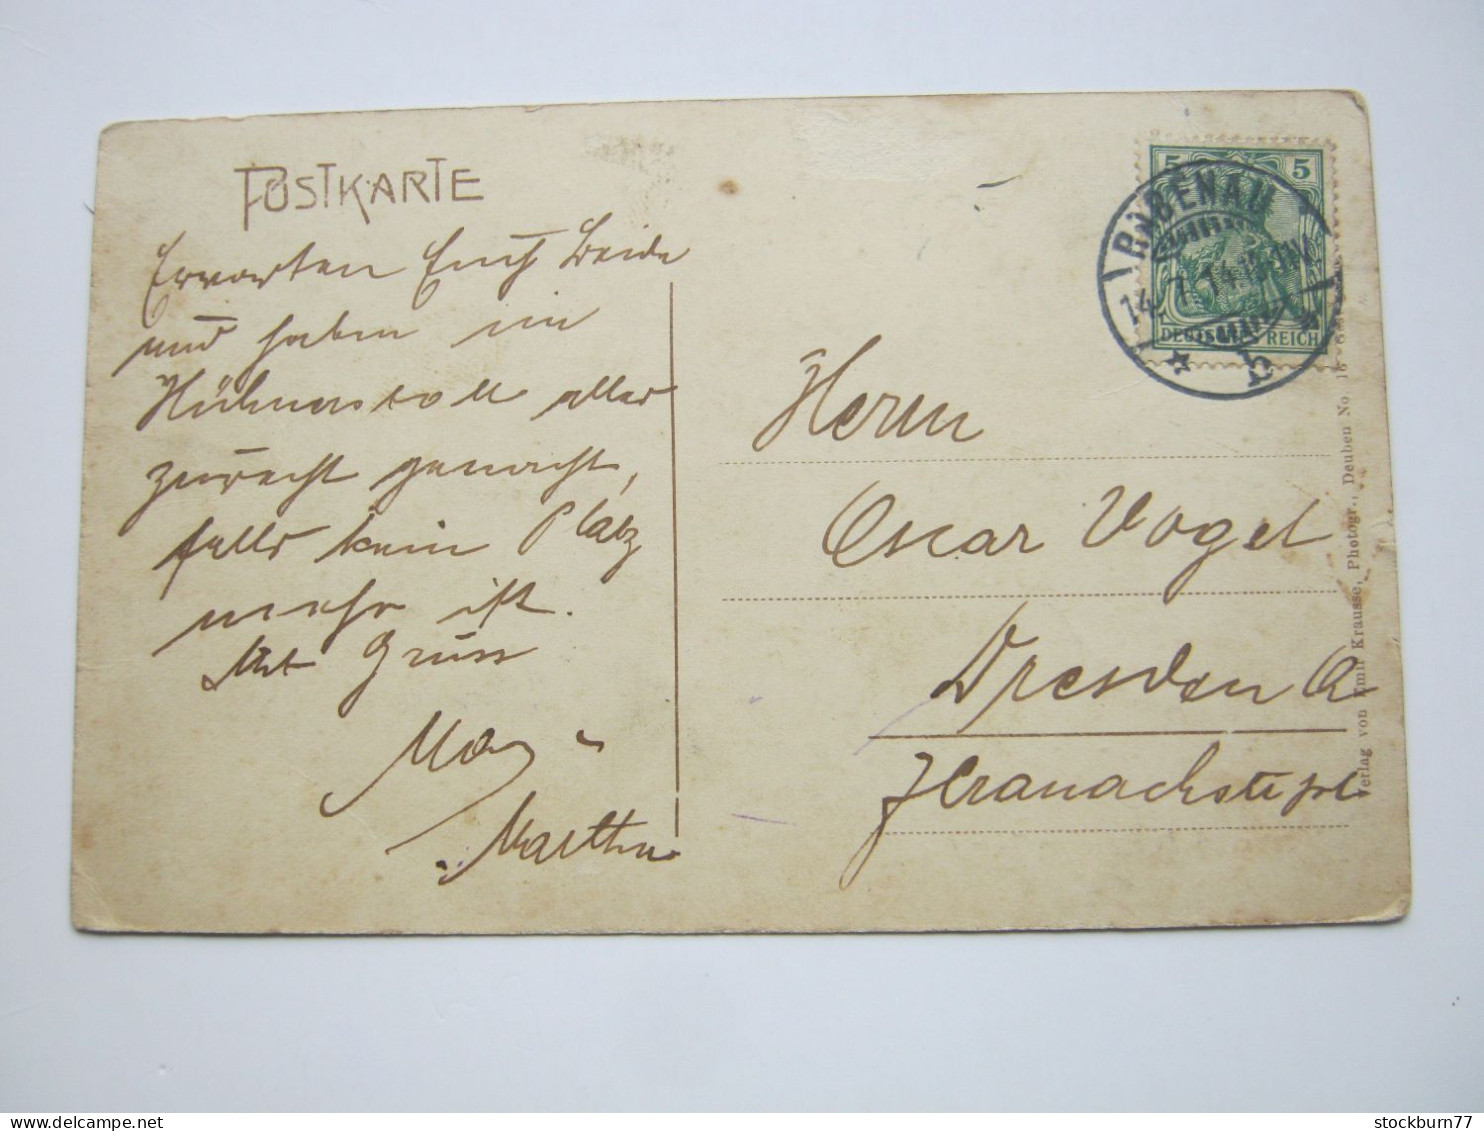 POSTKARTE
Erwarten Euch Beide
und haben im
Hühnerstall alles
zurecht gemacht,
falls kein Platz
mehr ist.
Mit Gruss
Max
Martha
5 5
DEUTSCHES REICH
RABENAU
14. 7. 14.
b
Herrn
Oscar Vogel
Dresden A
Cranachstr
Verlag von Emil Krausse, Photogr., Deuben No. 18
stockburn77